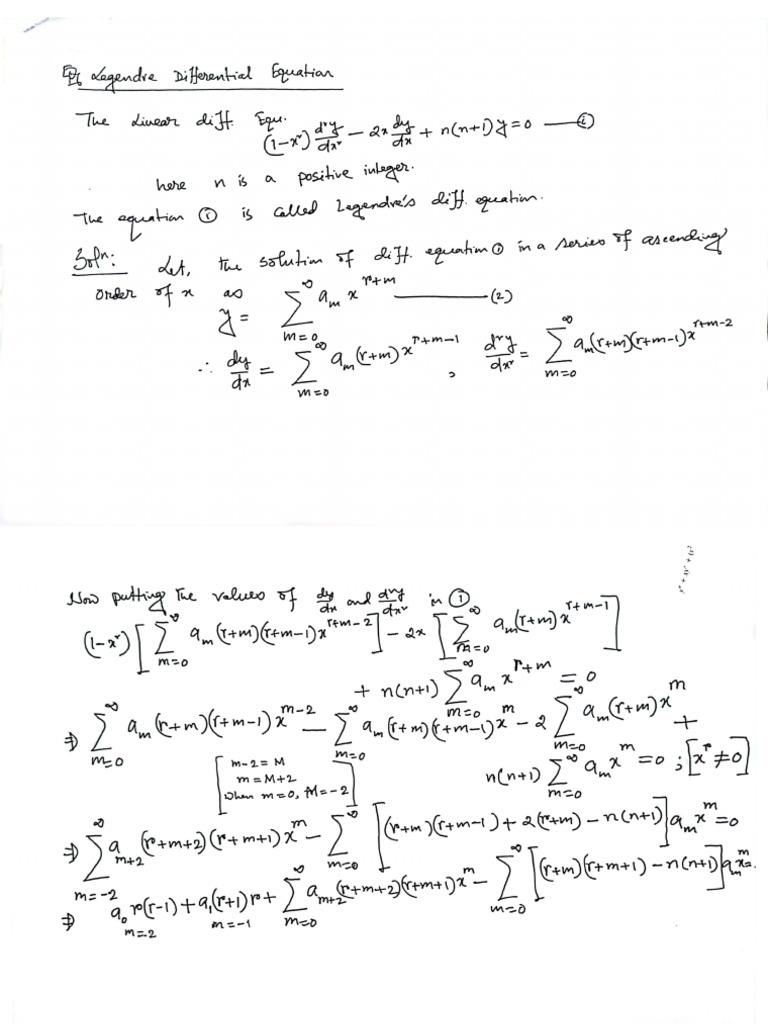 Legendre Differential Equation
The Linear diff. Equ.
(1-xʳ) dʳy/dxʳ - 2x dy/dx + n(n+1)y = 0 —— ①
here n is a positive integer.
The equation ① is called Legendre's diff. equation.
Solⁿ: Let, the solution of diff. equation ① in a series of ascending
order of x as
y = ∑_{m=0}^{∞} a_m x^{r+m} ——— (2)
∴ dy/dx = ∑_{m=0}^{∞} a_m (r+m) x^{r+m-1} , dʳy/dxʳ = ∑_{m=0}^{∞} a_m (r+m)(r+m-1) x^{r+m-2}
Now putting the values of dy/dx and dʳy/dxʳ in ①
(1-xʳ) [∑_{m=0}^{∞} a_m (r+m)(r+m-1) x^{r+m-2}] - 2x [∑_{m=0}^{∞} a_m (r+m) x^{r+m-1}]
+ n(n+1) ∑_{m=0}^{∞} a_m x^{r+m} = 0
⇒ ∑_{m=0}^{∞} a_m (r+m)(r+m-1) x^{m-2} - ∑_{m=0}^{∞} a_m (r+m)(r+m-1) x^m - 2 ∑_{m=0}^{∞} a_m (r+m) x^m +
n(n+1) ∑_{m=0}^{∞} a_m x^m = 0 ; [xʳ ≠ 0]
[m-2 = M
m = M+2
when m=0, M=-2]
⇒ ∑_{m=-2}^{∞} a_{m+2} (r+m+2)(r+m+1) x^m - ∑_{m=0}^{∞} [(r+m)(r+m-1) + 2(r+m) - n(n+1)] a_m x^m = 0
⇒ a₀ r(r-1) + a₁(r+1) r + ∑_{m=0}^{∞} a_{m+2} (r+m+2)(r+m+1) x^m - ∑_{m=0}^{∞} [(r+m)(r+m+1) - n(n+1)] a_m x^m =
m=-2 m=-1